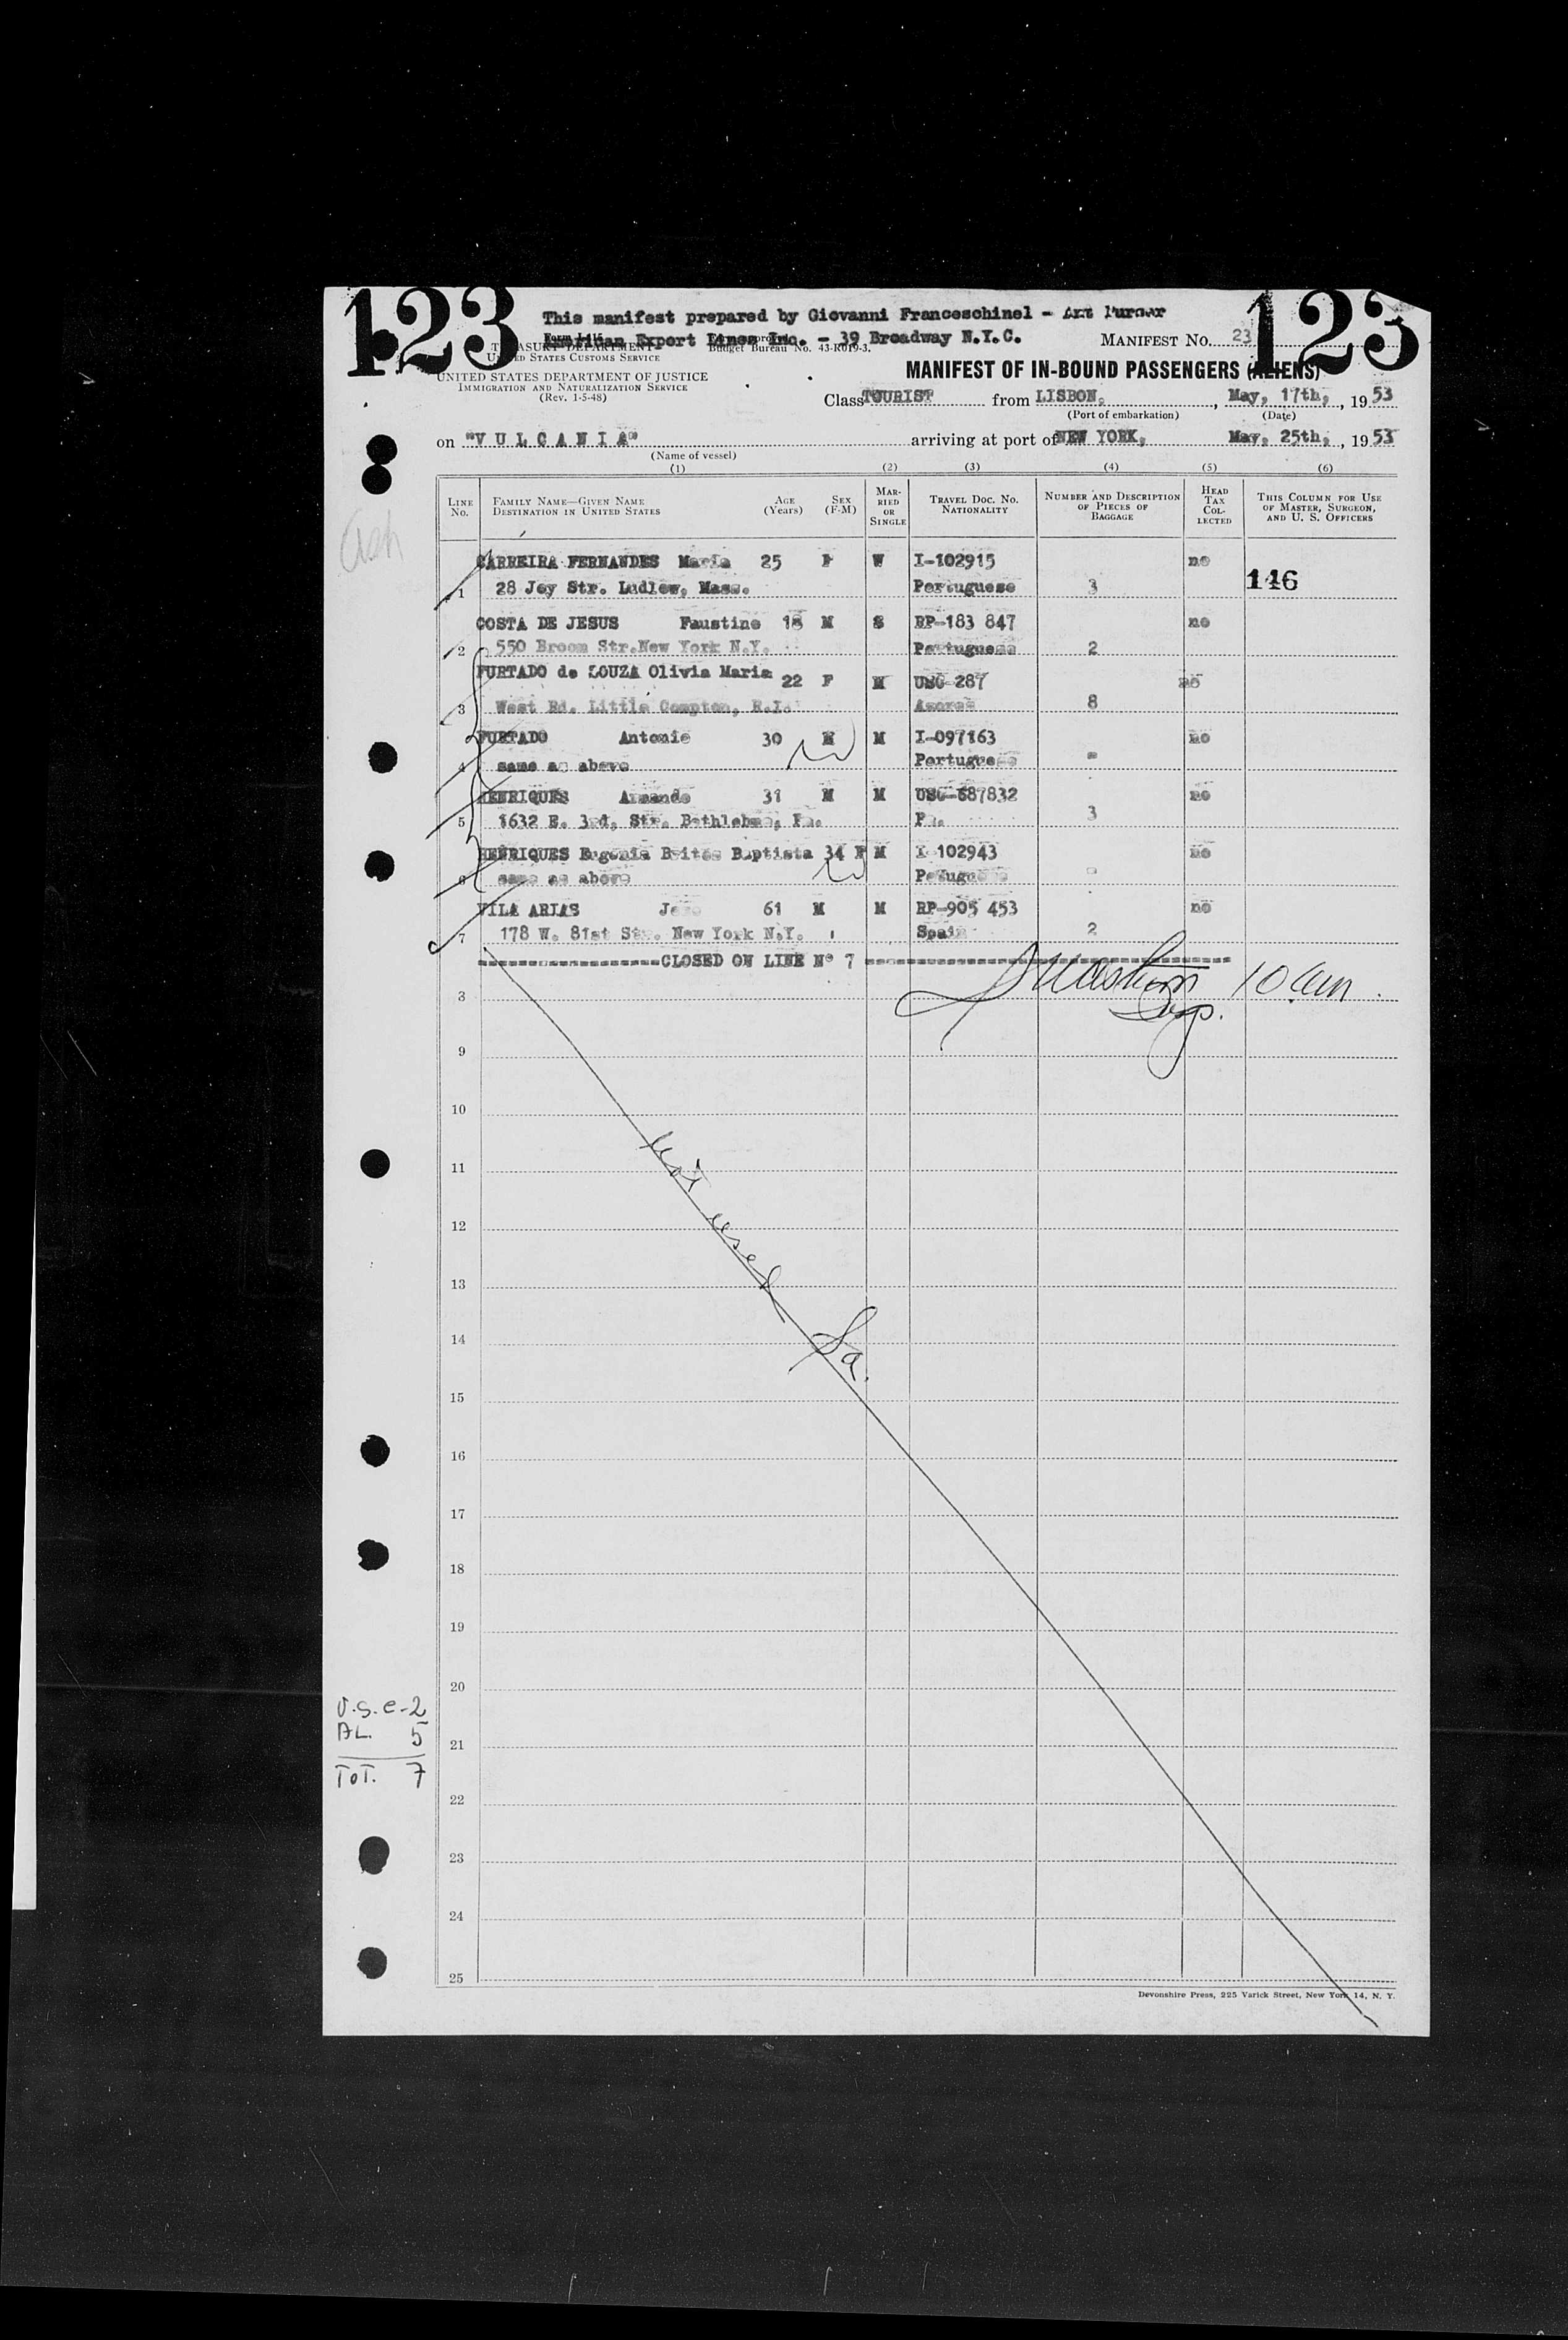 123 123
This manifest prepared by Giovanni Franceschinel -
American Export Lines Inc. - 39 Broadway N.Y.C.
TREASURY DEPARTMENT
UNITED STATES CUSTOMS SERVICE
Budget Bureau No. 43-R019-3.
MANIFEST NO. 23
UNITED STATES DEPARTMENT OF JUSTICE
IMMIGRATION AND NATURALIZATION SERVICE
(Rev. 1-5-48)
MANIFEST OF IN-BOUND PASSENGERS (ALIENS)
Class TOURIST from LISBON, , May, 17th, , 19 53
(Port of embarkation) (Date)
on "V U L C A N I A" arriving at port of NEW YORK, May, 25th, , 19 53
(Name of vessel)
(1) (2) (3) (4) (5) (6)
LINE NO. FAMILY NAME—GIVEN NAME DESTINATION IN UNITED STATES AGE (Years) SEX (F-M) MARRIED OR SINGLE TRAVEL DOC. NO. NATIONALITY NUMBER AND DESCRIPTION OF PIECES OF BAGGAGE HEAD TAX COLLECTED THIS COLUMN FOR USE OF MASTER, SURGEON, AND U. S. OFFICERS
CARREIRA FERNANDES Maria 25 F W I-102915 no
1 28 Joy Str. Ludlow, Mass. Portuguese 3 146
COSTA DE JESUS Faustino 18 M S RP-183 847 no
2 550 Broom Str. New York N.Y. Portuguese 2
FURTADO de SOUZA Olivia Maria 22 F M USC-287 no
3 West Rd. Little Compton, R.I. Azores 8
FURTADO Antonio 30 M M I-097163 no
4 same as above Portuguese -
HENRIQUES Armando 31 M M USC-687832 no
5 1632 E. 3rd, Str. Bethlehem, Pa. Pa. 3
HENRIQUES Eugenia Brites Baptista 34 F M I-102943 no
6 same as above Portuguese -
VILA ARIAS Jose 61 M M RP-905 453 no
7 178 W. 81st Str. New York N.Y. Spain 2
CLOSED ON LINE Nº 7
10 am.
8
9
10
11
not used
12
13
14
15
16
17
18
19
20
U.S.C-2
AL. 5
21
TOT. 7
22
23
24
25
Devonshire Press, 225 Varick Street, New York 14, N. Y.